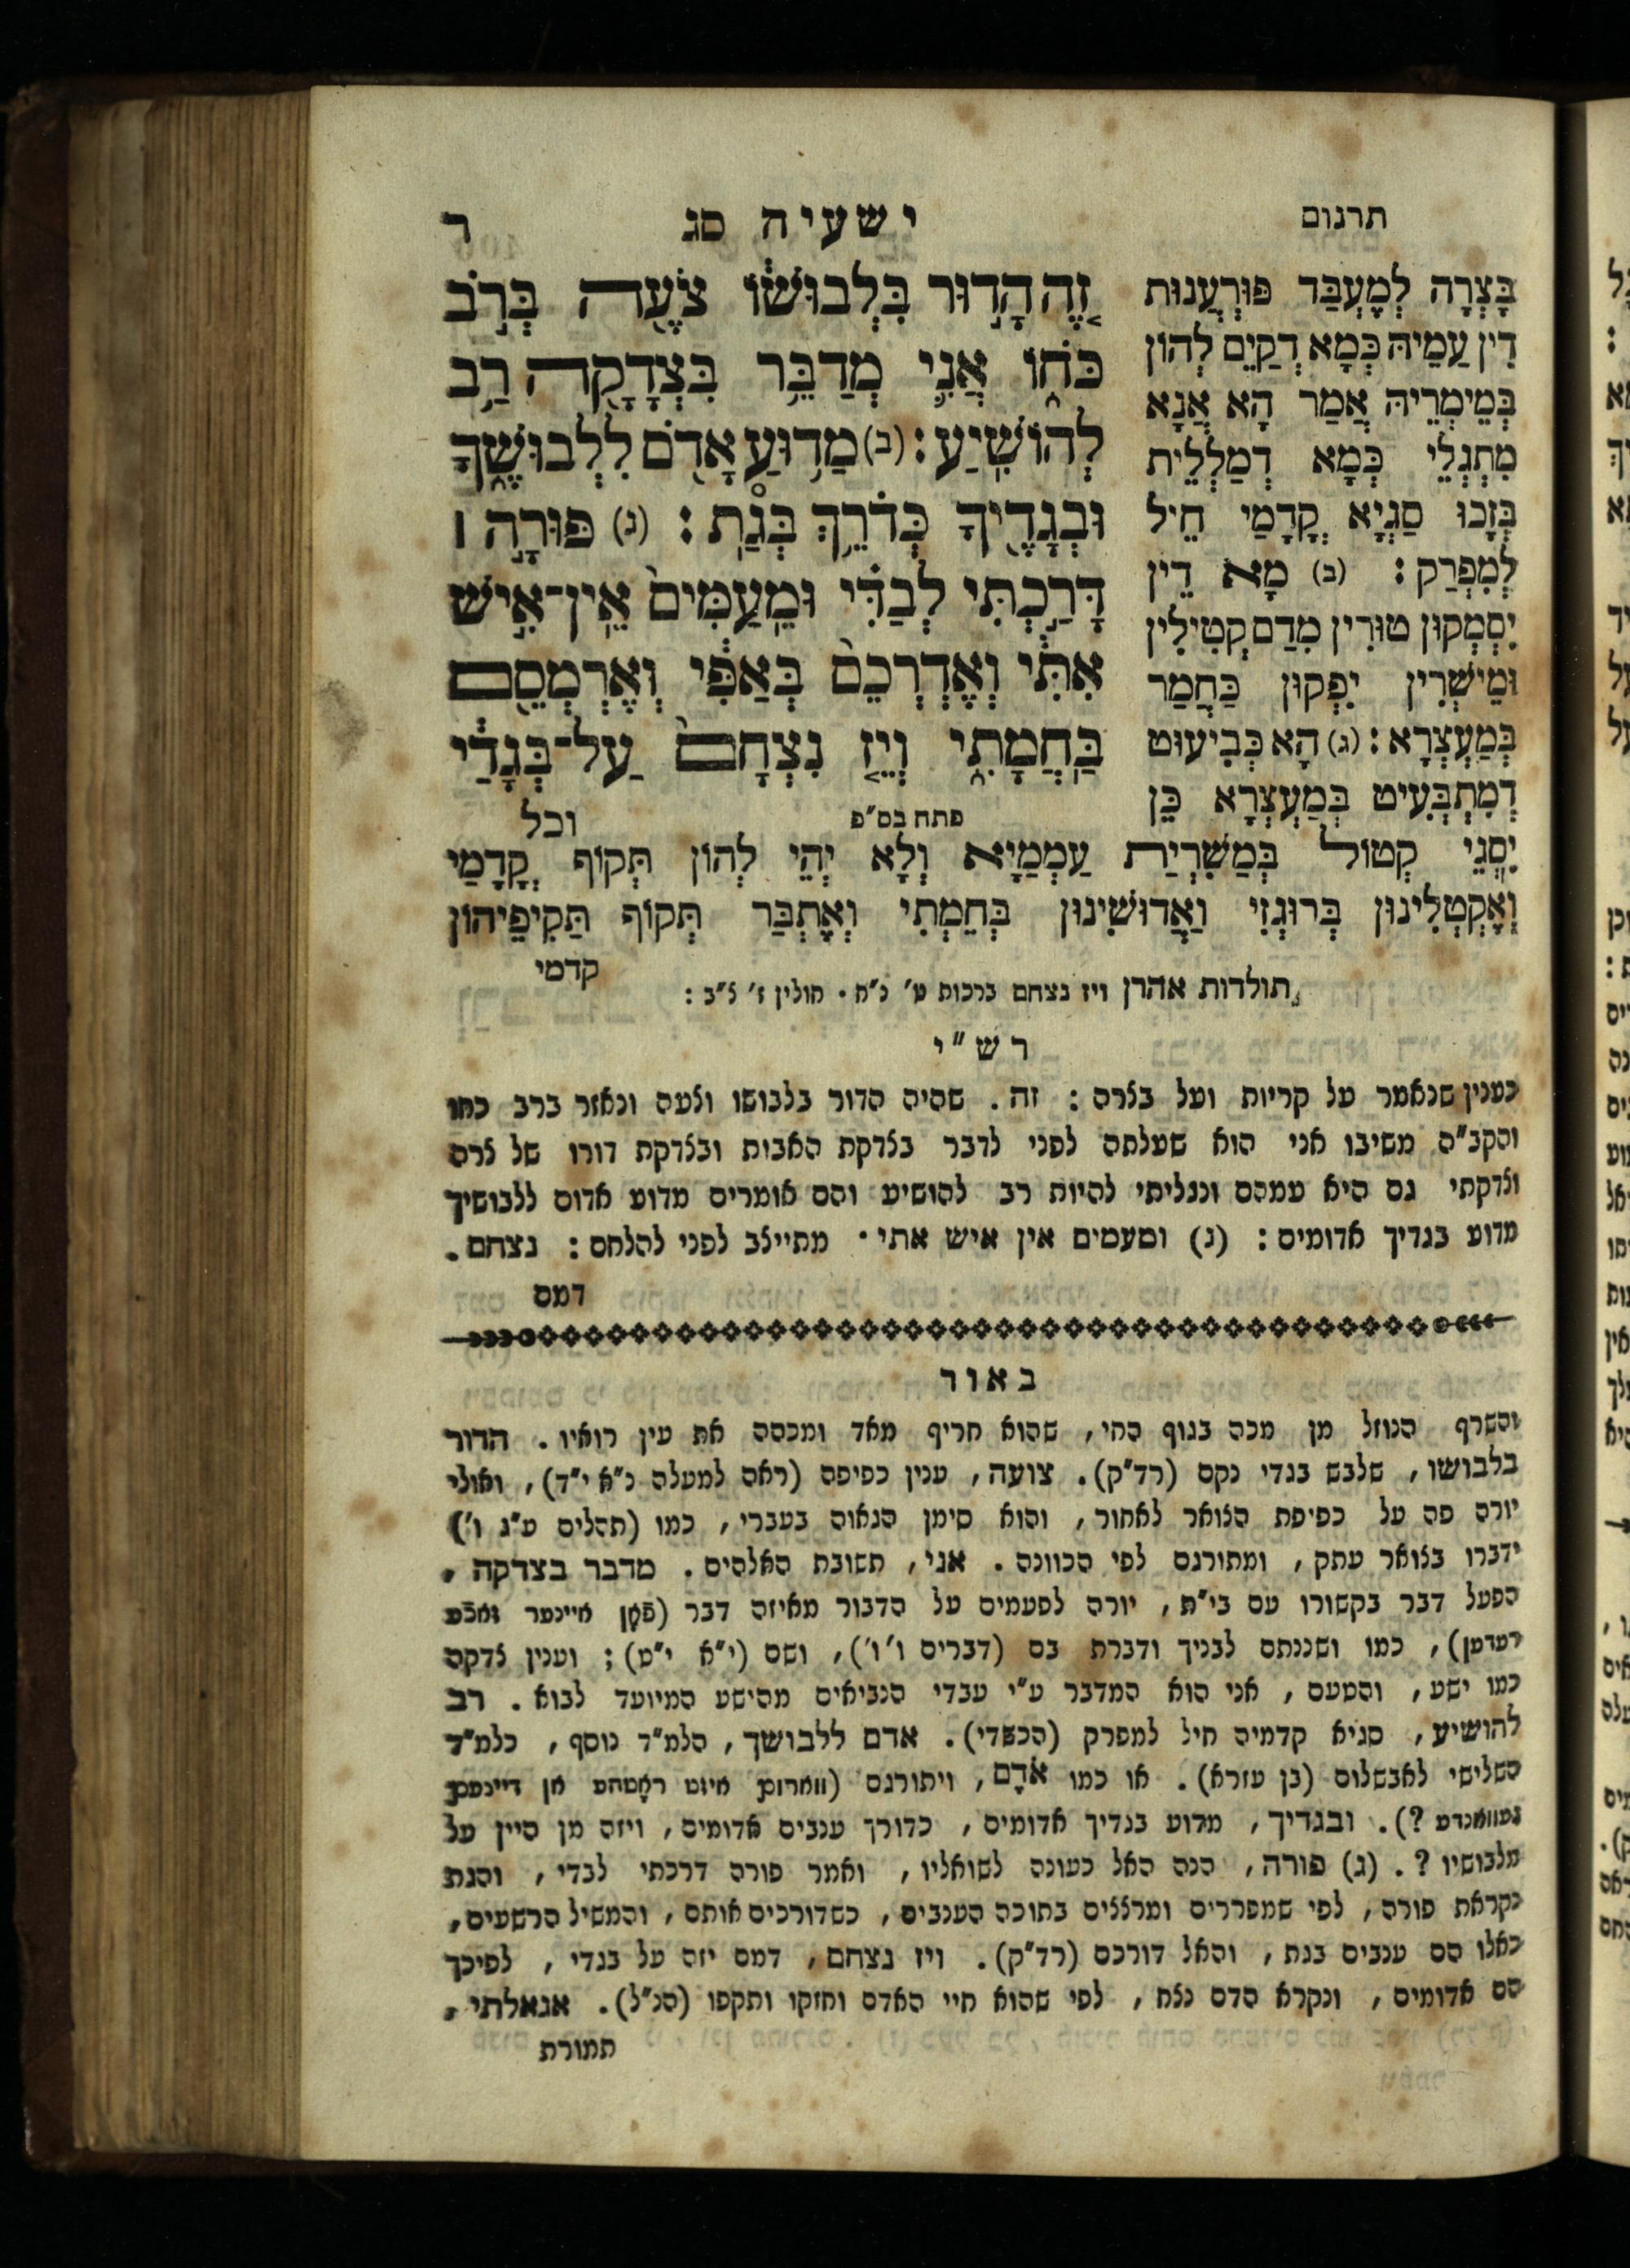 תרגום
ישעיה סג
ר
בָּצְרָה לְמֶעְבַּד פּוּרְעֲנוּת
דִין עַמֵיהּ כְּמָא דְקַיֵם לְהוֹן
בְּמֵימְרֵיהּ אֲמַר הָא אֲנָא
מִתְגְלֵי כְּמָא דְמַלְלֵית
בְּזָכוּ סַגְיָא קֳדָמַי חֵיל
לְמִפְרַק : (ב) מָא דֵין
יִסְמְקוּן טוּרִין מִדַם קְטִילִין
וּמֵישְׁרִין יִפְקוּן כַּחֲמַר
בְּמַעְצְרָא : (ג) הָא כְּבִיעוּט
דְמִתְבְּעִיט בְּמַעְצְרָא כֵּן
זֶ֚ה הָד֣וּר בִּלְבוּשׁ֔וֹ צֹעֶ֖ה בְּרֹ֣ב
כֹּח֑וֹ אֲנִ֛י מְדַבֵּ֥ר בִּצְדָקָ֖ה רַ֥ב
לְהוֹשִֽׁיעַ : (ב) מַדּ֥וּעַ אָדֹ֖ם לִלְבוּשֶׁ֑ךָ
וּבְגָדֶ֖יךָ כְּדֹרֵ֥ךְ בְּגַֽת : (ג) פּוּרָ֣ה ׀
דָּרַ֣כְתִּי לְבַדִּ֗י וּמֵֽעַמִּים֙ אֵֽין־אִ֣ישׁ
אִתִּ֔י וְאֶדְרְכֵם֙ בְּאַפִּ֔י וְאֶרְמְסֵ֖ם
בַּֽחֲמָתִ֑י וְיֵ֤ז נִצְחָם֙ עַל־בְּגָדַ֔י
פתח בס״פ
וכל
יִסְגֵי קְטוֹל בְּמַשִׁרְיַת עַמְמַיָא וְלָא יְהֵי לְהוֹן תְּקוֹף קֳדָמַי
וְאֶקְטְלִינוּן בְּרוּגְזִי וַאֲדוּשִׁינוּן בְּחֵמְתִי וְאֶתְבַּר תְּקוֹף תַּקִיפֵיהוֹן
קדמי
תולדות אהרן ויז נצחם ברכות ט׳ נ״ח . חולין ז׳ צ״ב :
רש״י
כענין שנאמר על קריות ועל בצרה : זה . שהיה הדור בלבושו וצעה ונאזר ברב כחו
והקב״ה משיבו אני הוא שעלתה לפני לדבר בצדקת האבות ובצדקת דורו של צרה
וצדקתי גם היא עמהם ונגליתי להיות רב להושיע והם אומרים מדוע אדום ללבושיך
מדוע בגדיך אדומים : (ג) ומעמים אין איש אתי . מתייצב לפני להלחם : נצחם .
דמם
באור
והשרף הנוזל מן מכה בגוף החי, שהוא חריף מאד ומכסה את עין רואיו . הדור
בלבושו, שלבש בגדי נקם (רד״ק) . צועה, ענין כפיפה (ראה למעלה נ״א י״ד), ואולי
יורה פה על כפיפת הצואר לאחור, והוא סימן הגאוה בעברי, כמו (תהלים ע״ג ו׳)
ידברו בצואר עתק, ומתורגם לפי הכוונה . אני, תשובת האלהים . מדבר בצדקה,
הפעל דבר בקשורו עם בי״ת, יורה לפעמים על הדבור מאיזה דבר (פֿאָן איינער זאכֿע
רעדען), כמו ושננתם לבניך ודברת בם (דברים ו׳ ו׳), ושם (י״א י״ט) ; וענין צדקה
כמו ישע, והטעם, אני הוא המדבר ע״י עבדי הנביאים מהישע המיועד לבוא . רב
להושיע, סגיא קדמיה חיל למפרק (הכשדי) . אדם ללבושך, הלמ״ד נוסף, כלמ״ד
השלישי לאבשלום (בן עזרא) . או כמו אֹדָם, ויתורגם (ווארום איזט ראָטהע אן דיינעם
געוואנדע ?) . ובגדיך, מדוע בגדיך אדומים, כדורך ענבים אדומים, ויזה מן היין על
מלבושיו ? . (ג) פורה, הנה האל כעונה לשואליו, ואמר פורה דרכתי לבדי, והגת
נקראת פורה, לפי שמפררים ומרצצים בתוכה הענבים, כשדורכים אותם, והמשיל הרשעים,
כאלו הם ענבים בגת, והאל דורכם (רד״ק) . ויז נצחם, דמם יזה על בגדי, לפיכך
הם אדומים, ונקרא הדם נצח, לפי שהוא חיי האדם וחזקו ותקפו (הנ״ל) . אגאלתי,
תמורת